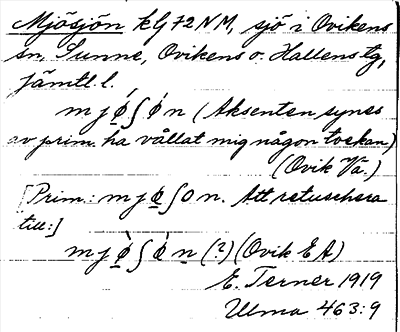 Mjösjön klg 72 NM, sjö i Ovikens
sn, Sunne, Ovikens o. Hallens tg,
Jämtl. l.
m j ǿ̲ ʃ ǿ n (Aksenten synes
av prim. ha vållat mig någon tvekan)
(Ovik Va.)
[Prim.: m j ø̲ ʃ o n. Att retuschera
till:]
m j ø̲̀ ʃ ø̀ n̲ (?) (Ovik E A)
E. Terner 1919
Ulma 463:9